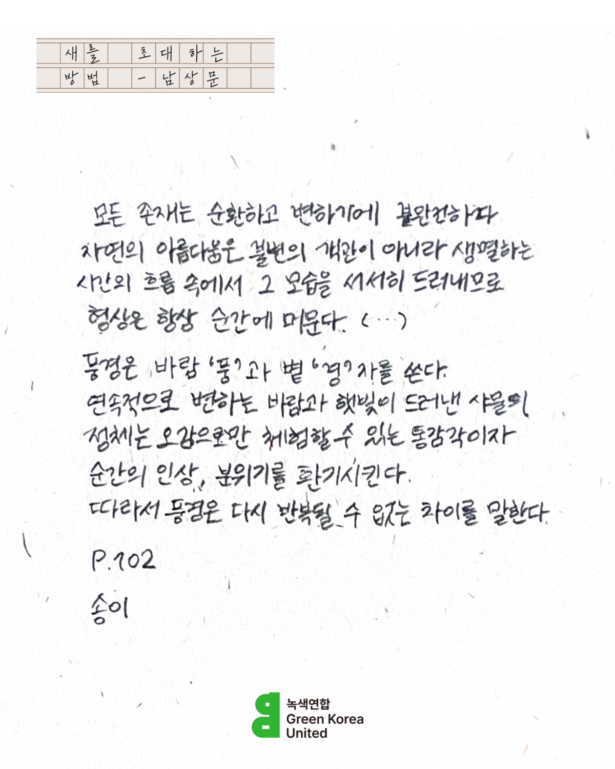 새를 초대하는
방법 - 남상문
모든 존재는 순환하고 변하기에 불완전하다
자연의 아름다움은 불변의 객관이 아니라 생멸하는
시간의 흐름 속에서 그 모습을 서서히 드러내므로
형상은 항상 순간에 머문다. (…)
풍경은 바람 '풍'과 볕 '경'자를 쓴다.
연속적으로 변하는 바람과 햇빛이 드러낸 사물의
정체는 오감으로만 체험할 수 있는 통감각이자
순간의 인상, 분위기를 환기시킨다.
따라서 풍경은 다시 반복될 수 없는 차이를 말한다.
P.102
송이
녹색연합
Green Korea
United